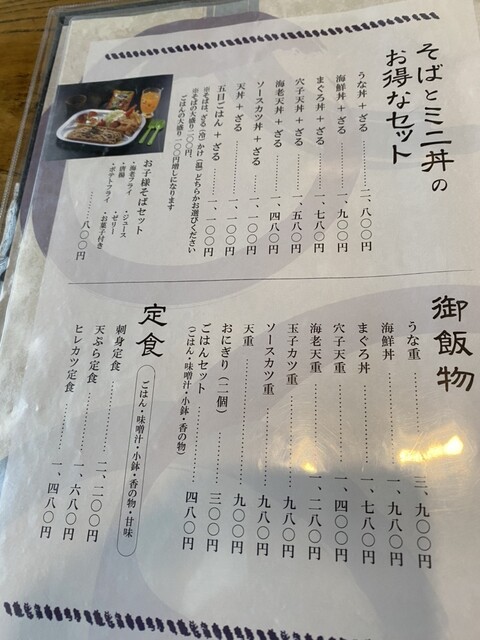 そばとミニ丼の
お得なセット
うな丼＋ざる…………二、八〇〇円
海鮮丼＋ざる…………一、九〇〇円
まぐろ丼＋ざる…………一、七八〇円
穴子天丼＋ざる…………一、五八〇円
海老天丼＋ざる…………一、四八〇円
ソースカツ丼＋ざる…………一、一〇〇円
天丼＋ざる…………一、一〇〇円
五目ごはん＋ざる…………一、一〇〇円
※そばは、ざる（冷）かけ（温）どちらかお選びください
※そばの大盛り二〇〇円、
ごはんの大盛り一〇〇円増しになります
お子様そばセット
・海老フライ　・ジュース
・唐揚　・ゼリー
・ポテトフライ　・お菓子付き
…………八〇〇円
御飯物
うな重…………三、九〇〇円
海鮮丼…………一、九八〇円
まぐろ丼…………一、七八〇円
穴子天重…………一、四〇〇円
海老天重…………一、二八〇円
玉子カツ重…………九八〇円
ソースカツ重…………九八〇円
天重…………九〇〇円
おにぎり（二個）…………三〇〇円
ごはんセット…………四八〇円
（ごはん・味噌汁・小鉢・香の物）
定食
ごはん・味噌汁・小鉢・香の物・甘味
刺身定食…………二、二〇〇円
天ぷら定食…………一、六八〇円
ヒレカツ定食…………一、四八〇円